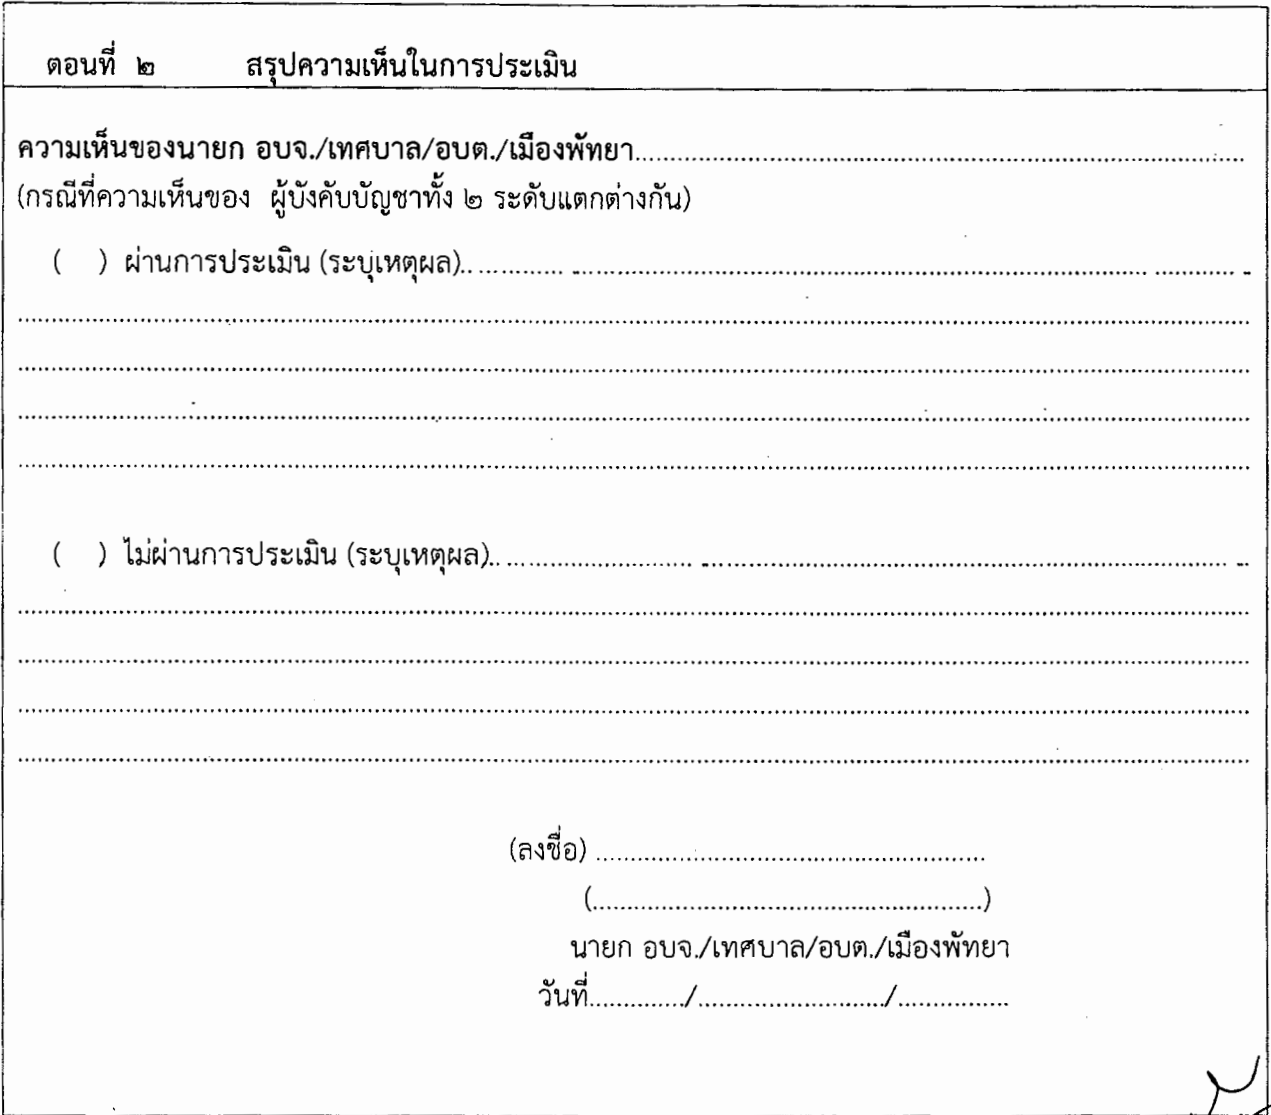 ตอนที่ ๒ สรุปความเห็นในการประเมิน
ความเห็นของนายก อบจ./เทศบาล/อบต./เมืองพัทยา..............................................................................
(กรณีที่ความเห็นของ ผู้บังคับบัญชาทั้ง ๒ ระดับแตกต่างกัน)
( ) ผ่านการประเมิน (ระบุเหตุผล)..............................................................................
..............................................................................
..............................................................................
..............................................................................
..............................................................................
( ) ไม่ผ่านการประเมิน (ระบุเหตุผล)..............................................................................
..............................................................................
..............................................................................
..............................................................................
..............................................................................
(ลงชื่อ) ........................................................
(........................................................)
นายก อบจ./เทศบาล/อบต./เมืองพัทยา
วันที่............../.........................../................